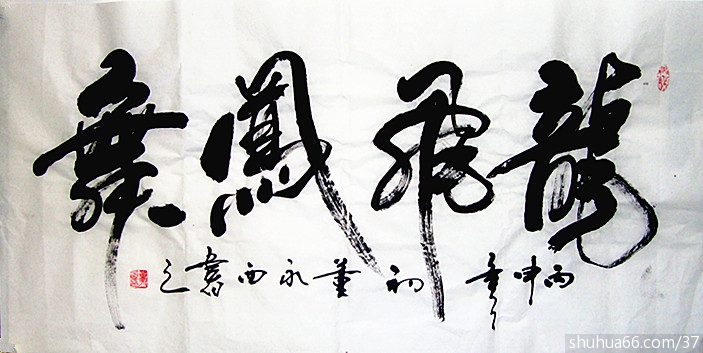 龍飛鳳舞
丙申年初董永西書之
shuhua66.com/37